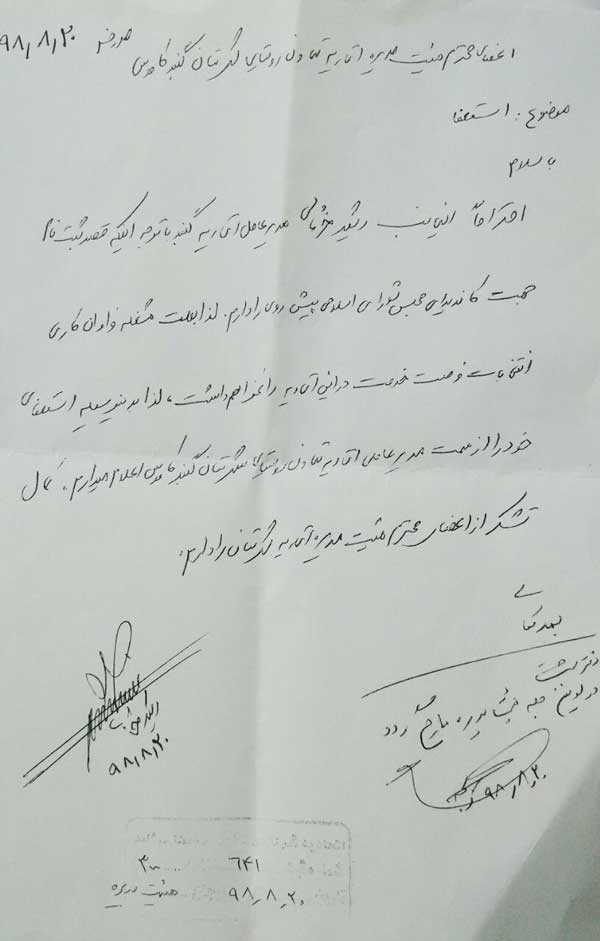 مورخه ۹۸/۸/۲۰
اعضای محترم هیئت مدیره اتحادیه تعاون روستایی شهرستان گنبد کاووس
موضوع: استعفا
با سلام
احتراماً اینجانب مدیرعامل اتحادیه گنبد با توجه اینکه قصد ثبت نام
جهت کاندیدای مجلس شورای اسلامی پیش روی را دارم. لذا بعلت مشغله فراوان کاری
انتخابات فرصت خدمت در این اتحادیه را نخواهم داشت، لذا بدینوسیله استعفای
خود را از سمت مدیرعاملی اتحادیه تعاون روستایی شهرستان گنبد کاووس اعلام میدارم، کمال
تشکر از اعضای محترم هیئت مدیره اتحادیه شهرستان را دارم.
۹۸/۸/۲۰
در اولین جلسه هیئت مدیره مطرح گردد
۹۸/۸/۲۰
۶۴۱
۹۸/۸/۲۰
هیئت مدیره